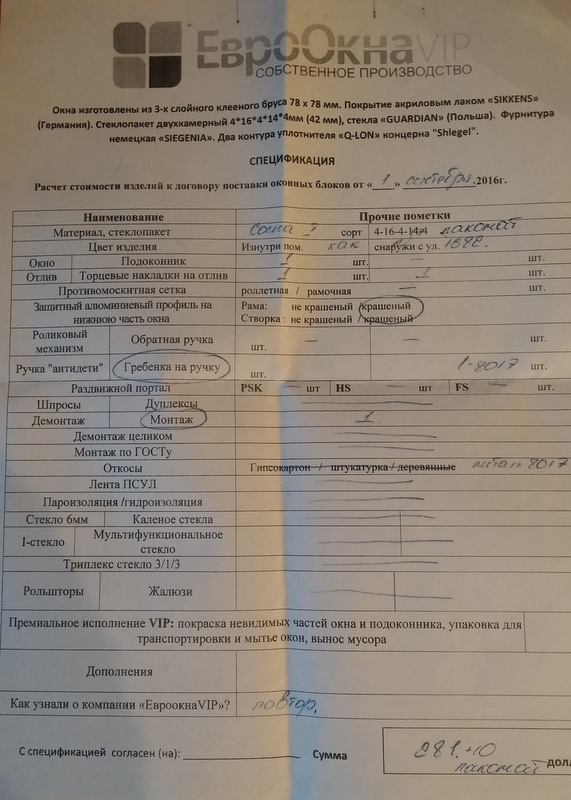 ЕвроОкнаVIP
СОБСТВЕННОЕ ПРОИЗВОДСТВО
Окна изготовлены из 3-х слойного клееного бруса 78 х 78 мм. Покрытие акриловым лаком «SIKKENS»
(Германия). Стеклопакет двухкамерный 4*16*4*14*4мм (42 мм), стекла «GUARDIAN» (Польша). Фурнитура
немецкая «SIEGENIA». Два контура уплотнителя «Q-LON» концерна "Shlegel".
СПЕЦИФИКАЦИЯ
Расчет стоимости изделий к договору поставки оконных блоков от «1» сентября 2016г.
Наименование Прочие пометки
Материал, стеклопакет сосна I сорт 4-16-4-14-4
Цвет изделия Изнутри пом. как снаружи с ул.
Окно Подоконник 1 шт. — шт.
Отлив Торцевые накладки на отлив 1 шт. 1 шт.
Противомоскитная сетка роллетная / рамочная — шт.
Защитный алюминиевый профиль на нижнюю часть окна Рама: не крашеный /крашеный
Створка: не крашеный /крашеный
Роликовый механизм Обратная ручка — шт. — шт.
Ручка "антидети" Гребенка на ручку шт. 1-8017 шт.
Раздвижной портал PSK — шт HS — FS — шт.
Шпросы Дуплексы
Демонтаж Монтаж 1
Демонтаж целиком
Монтаж по ГОСТу
Откосы Гипсокартон / штукатурка / деревянные 8017
Лента ПСУЛ
Пароизоляция /гидроизоляция
Стекло 6мм Каленое стекла
I-стекло Мультифункциональное стекло
Триплекс стекло 3/1/3
Рольшторы Жалюзи
Премиальное исполнение VIP: покраска невидимых частей окна и подоконника, упаковка для
транспортировки и мытье окон, вынос мусора
Дополнения
Как узнали о компании «ЕвроокнаVIP»? повтор.
С спецификацией согласен (на): Сумма 281.40